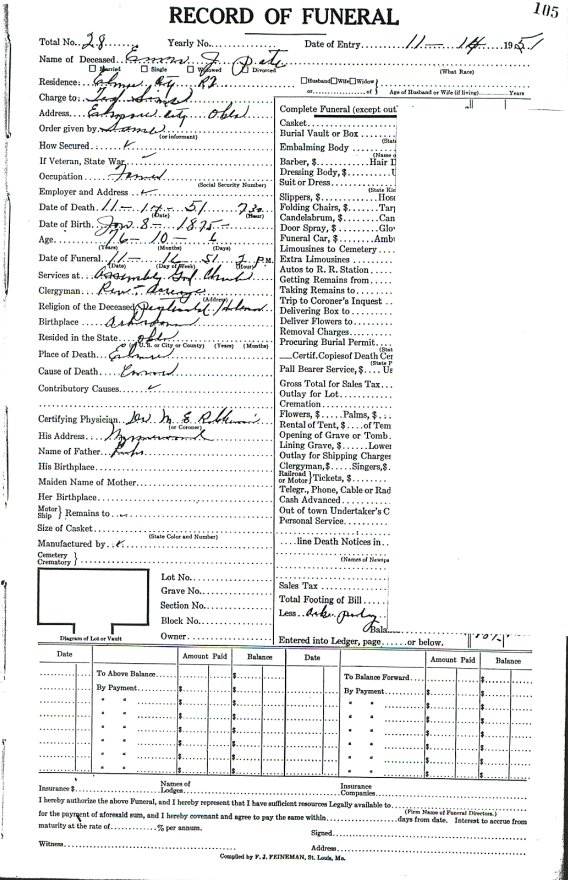 105
RECORD OF FUNERAL
Total No. 28 Yearly No. Date of Entry 11 — 14 1951
Name of Deceased J. Pate
Married Single Widowed Divorced (What Race)
Residence: City Rt Husband Wife Widow
or of Age of Husband or Wife (if living) Years
Charge to: Sims
Address City Okla
Order given by Same
(or informant)
How Secured
If Veteran, State War
Occupation Farmer
(Social Security Number)
Employer and Address
Date of Death 11 — 14 — 51 7 30
(Date) (Hour)
Date of Birth Jan 8 — 1875 —
Age 76 — 10 — 6
(Years) (Months) (Days)
Date of Funeral 11 — 16 51 2 P.M.
(Date) (Day of Week) (Hour)
Services at Assembly God Church
Clergyman Rev —
(Address)
Religion of the Deceased
Birthplace Arkansas
Resided in the State Okla
(or U. S. or City or County) (Years) (Months)
Place of Death
Cause of Death
Contributory Causes
Certifying Physician Dr. M. E. Robberson
(or Coroner)
His Address Wynnewood
Name of Father
His Birthplace
Maiden Name of Mother
Her Birthplace
Motor Ship } Remains to
Size of Casket
(State Color and Number)
Manufactured by
Cemetery Crematory }
Lot No.
Grave No.
Section No.
Block No.
Diagram of Lot or Vault Owner
Complete Funeral (except out
Casket
Burial Vault or Box
(State
Embalming Body
(Name o
Barber, $ Hair D
Dressing Body, $ U
Suit or Dress
(State Kin
Slippers, $ Hose
Folding Chairs, $ Tarp
Candelabrum, $ Can
Door Spray, $ Glo
Funeral Car, $ Ambu
Limousines to Cemetery
Extra Limousines
Autos to R. R. Station
Getting Remains from
Taking Remains to
Trip to Coroner's Inquest
Delivering Box to
Deliver Flowers to
Removal Charges
Procuring Burial Permit
(Stat
Certif. Copies of Death Cer
(State P
Pall Bearer Service, $ Us
Gross Total for Sales Tax
Outlay for Lot
Cremation
Flowers, $ Palms, $
Rental of Tent, $ of Tem
Opening of Grave or Tomb
Lining Grave, $ Lower
Outlay for Shipping Charges
Clergyman, $ Singers, $
Railroad or Motor } Tickets, $
Telegr., Phone, Cable or Rad
Cash Advanced
Out of town Undertaker's C
Personal Service
line Death Notices in
(Names of Newspa
Sales Tax
Total Footing of Bill
Less
Bala
Entered into Ledger, page or below.
Date Amount Paid Balance Date Amount Paid Balance
To Above Balance $ To Balance Forward $
By Payment $ By Payment $
" " $ " " $
" " $ " " $
" " $ " " $
" " $ " " $
" " $ " " $
Insurance $ Names of Lodges Insurance Companies
I hereby authorize the above Funeral, and I hereby represent that I have sufficient resources Legally available to
(Firm Name of Funeral Directors.)
for the payment of aforesaid sum, and I hereby covenant and agree to pay the same within days from date. Interest to accrue from
maturity at the rate of % per annum. Signed
Witness Address
Compiled by F. J. FEINEMAN, St. Louis, Mo.